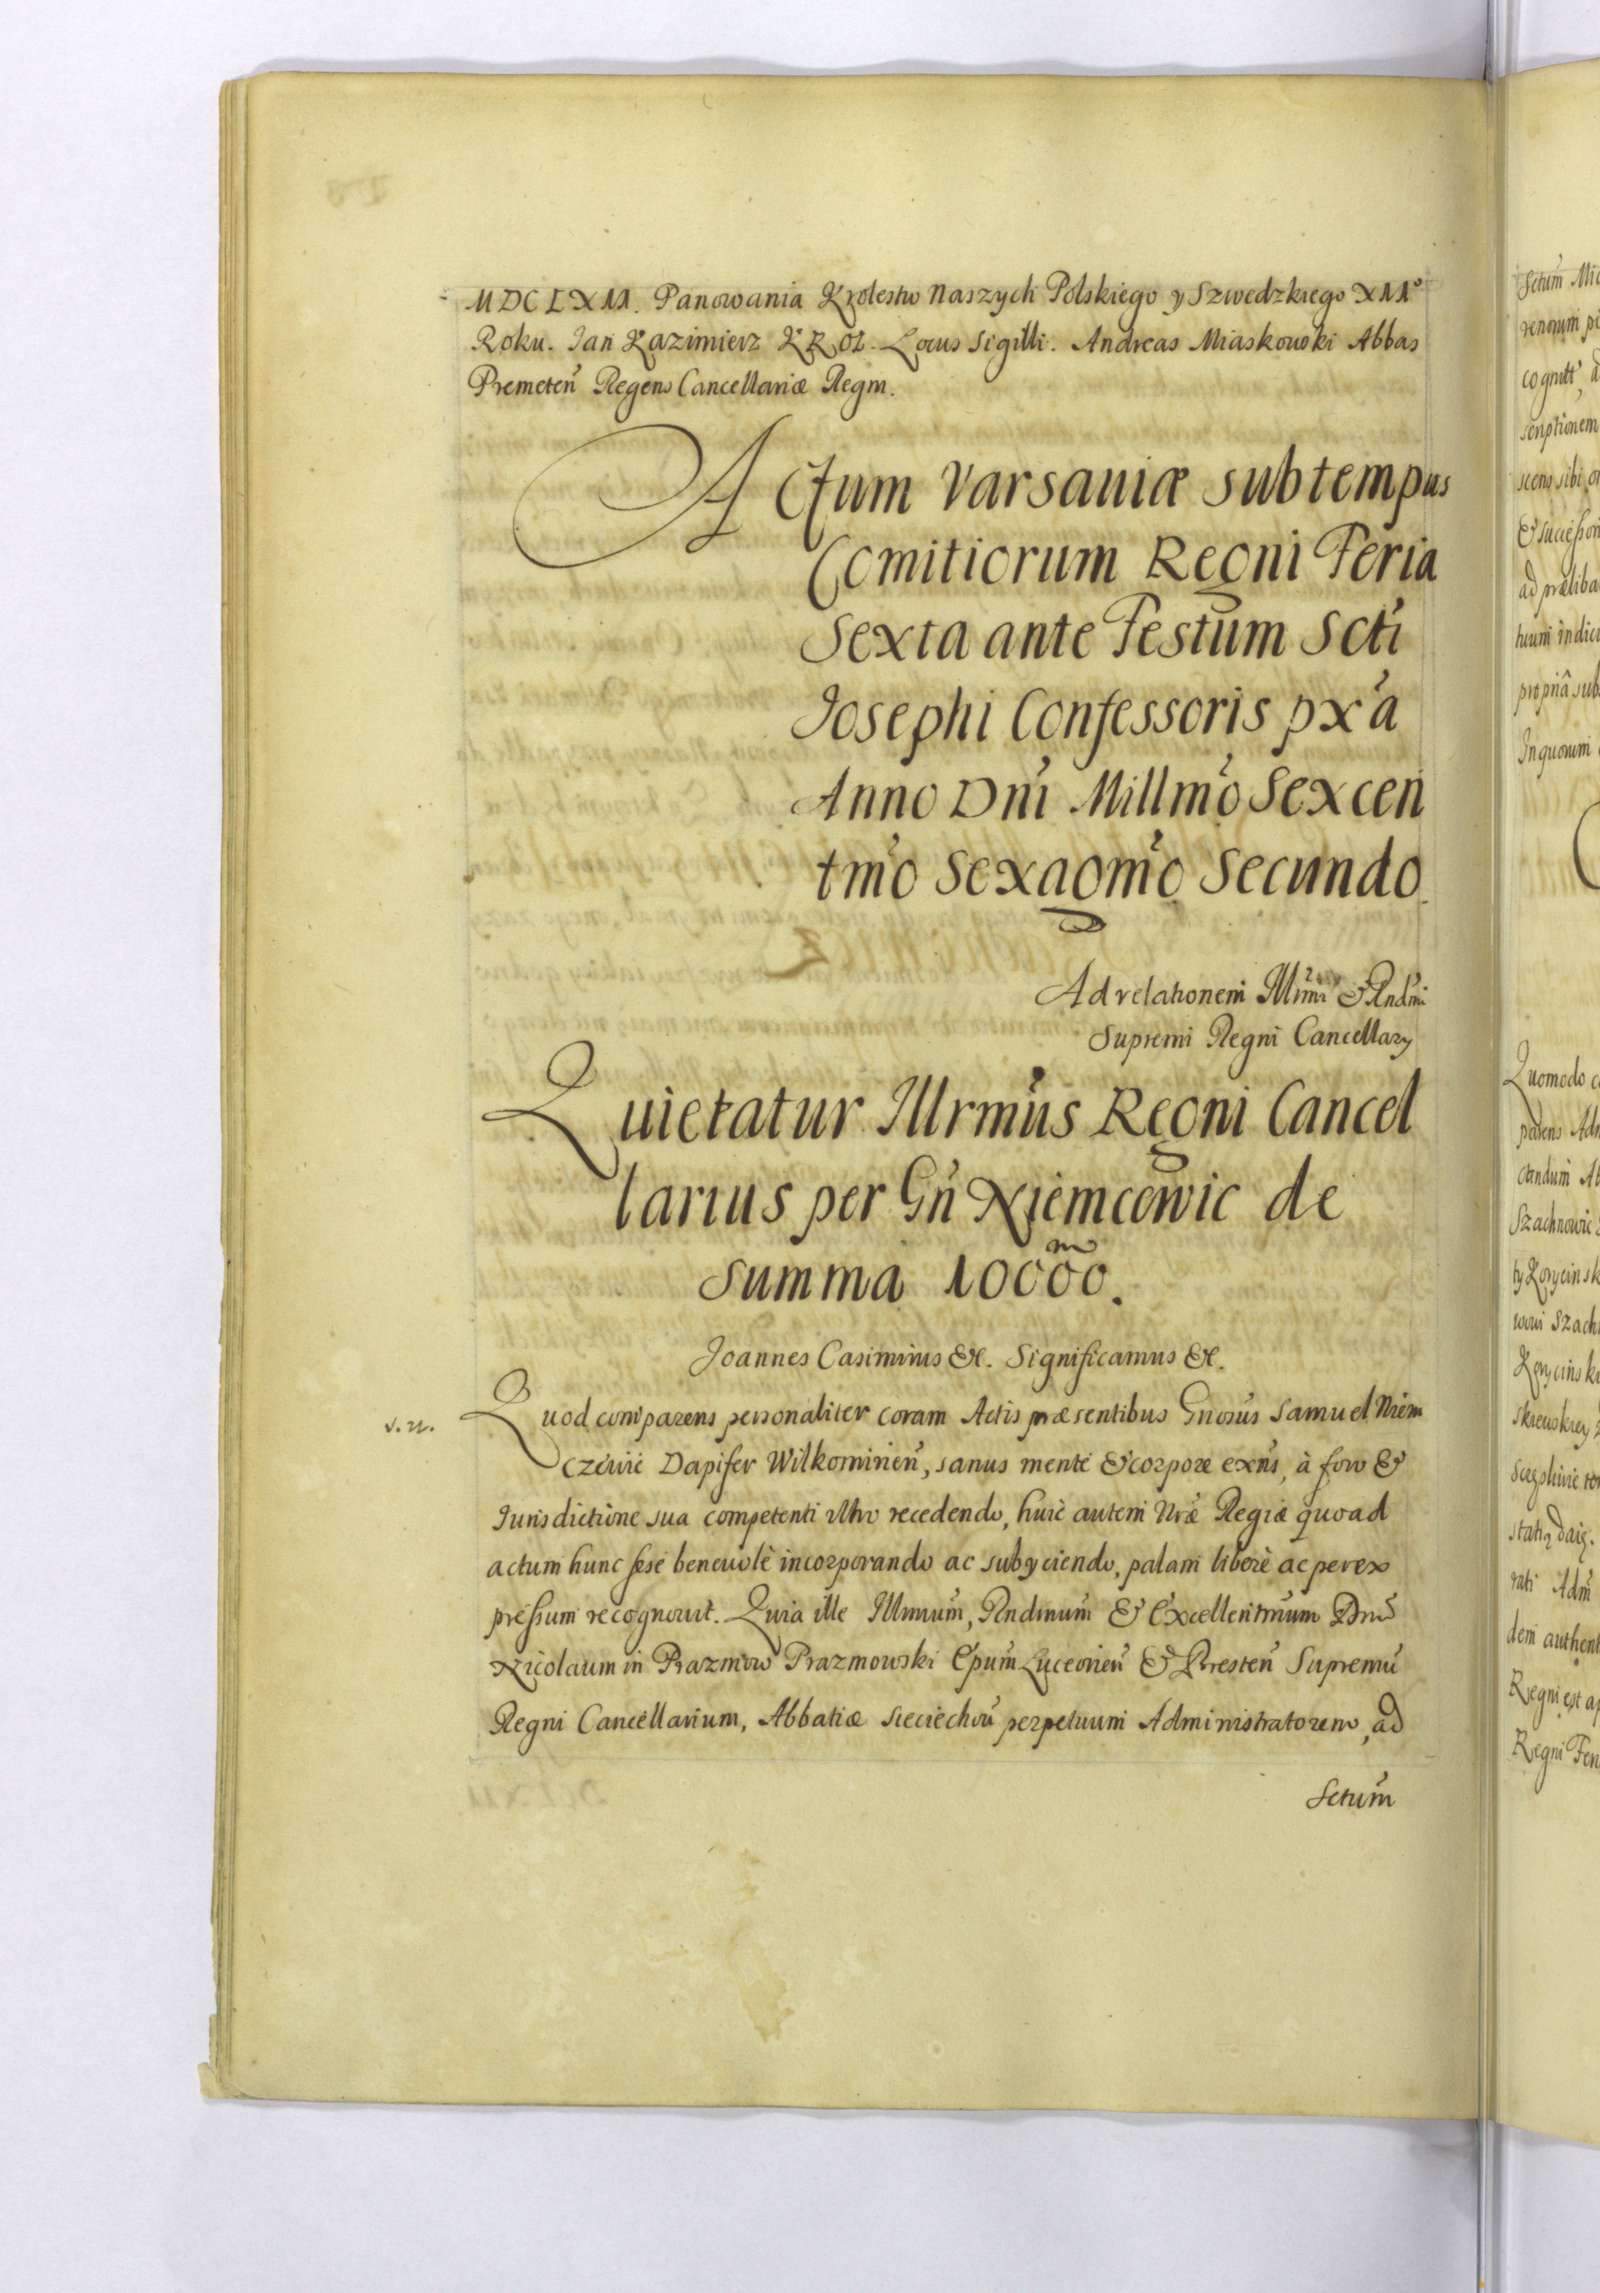 MDCLXII. Panowania Krolestw Naszych Polskiego y Szwedzkiego XIIII°
Roku. Jan Kazimierz KROL. Locus Sigilli. Andreas Miaskowski Abbas
Premeten̄ Regens Cancellariæ Regni.
Actum Varsaviæ sub tempus
Comitiorum Regni Feria
Sexta ante Festum Scti
Josephi Confessoris pxa
Anno Dni Millmo Sexcen
tmo Sexagmo Secundo.
Ad relationem Illrmi & Rndmi
Supremi Regni Cancellary
Quietatur Illrmus Regni Cancel
larius per Gn Niemcewic de
summa 10000.
m
Joannes Casimirus &c. Significamus &c.
v. n.
Quod comparens personaliter coram Actis præsentibus Gnosus Samuel Niem
czewic Dapifer Wilkomirien̄, sanus mente & corpore exns, à foro &
Jurisdictione sua competenti ultro recedendo, huic autem Nræ Regiæ quoad
actum hunc sese benevolè incorporando ac subyciendo, palam liberè ac perex
pressum recognovit. Quia ille Illmum, Rndmum & Excellentmum Dnu
Nicolaum in Prazmow Prazmowski Epum Luceorien̄ & Bresten̄ Supremu
Regni Cancellarium, Abbatiæ Sieciechou perpetuum Administratorem, ad
Sctum
Sctum
cognitt,
scriptionem
scens sibi
& successor
ad præliba
tuum indic
propriâ sub
In quorum
Quomodo
parens Adm
ctandum
Szachnowic
ty Korycinsk
Korycinsk
dem authent
Regni est
Regni Feri